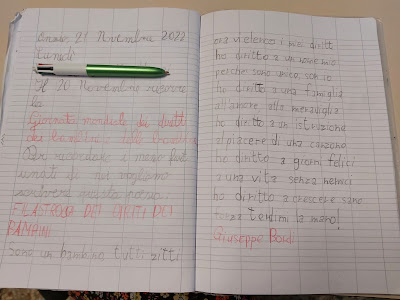 21 Novembre 2022
Lunedì
Il 20 Novembre ricorre
la
Giornata mondiale dei diritti
dei bambini
Per ricordare i meno fort
unati di noi vogliamo
scrivere questa poesia.
FILASTROCCA DEI DIRITTI DEI
BAMBINI
Sono un bambino tutti zitti
ora vi elenco i miei diritti
ho diritto a un nome mio
perché sono unico, son io
ho diritto a una famiglia
all'amore alla meraviglia
ho diritto a un istruzione
al piacere di una canzone
ho diritto a giorni felici
a una vita senza nemici
ho diritto a crescere sano
tendimi la mano!
Giuseppe